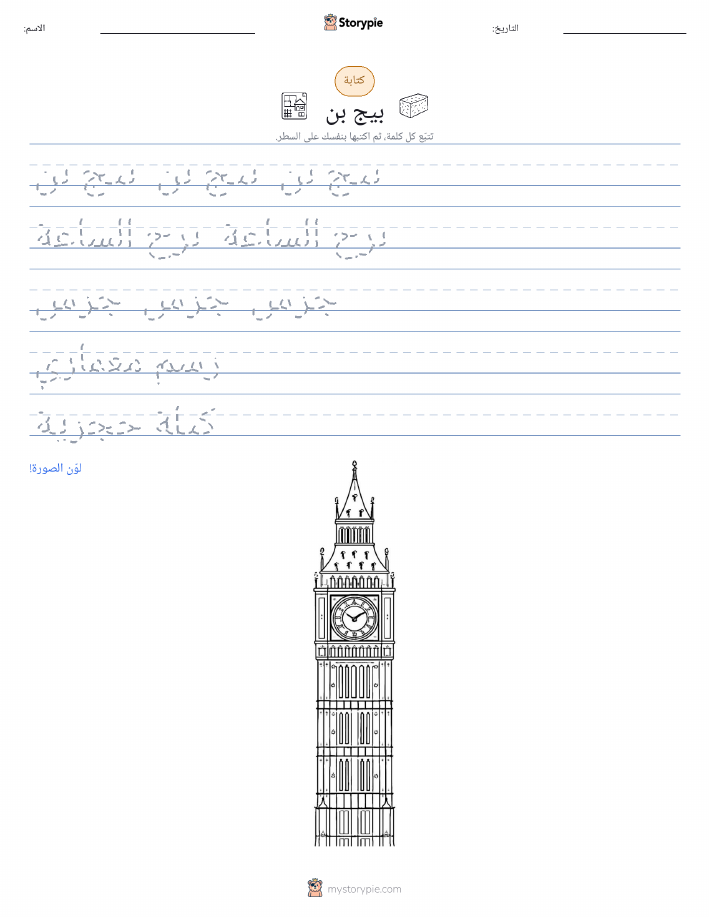 Storypie
الاسم:
التاريخ:
كتابة
بيج بن
تتبّع كل كلمة، ثم اكتبها بنفسك على السطر.
بيج بن بيج بن بيج بن
برج الساعة برج الساعة
جرس جرس جرس
رسم معماري
كتلة حجرية
لوّن الصورة!
mystorypie.com